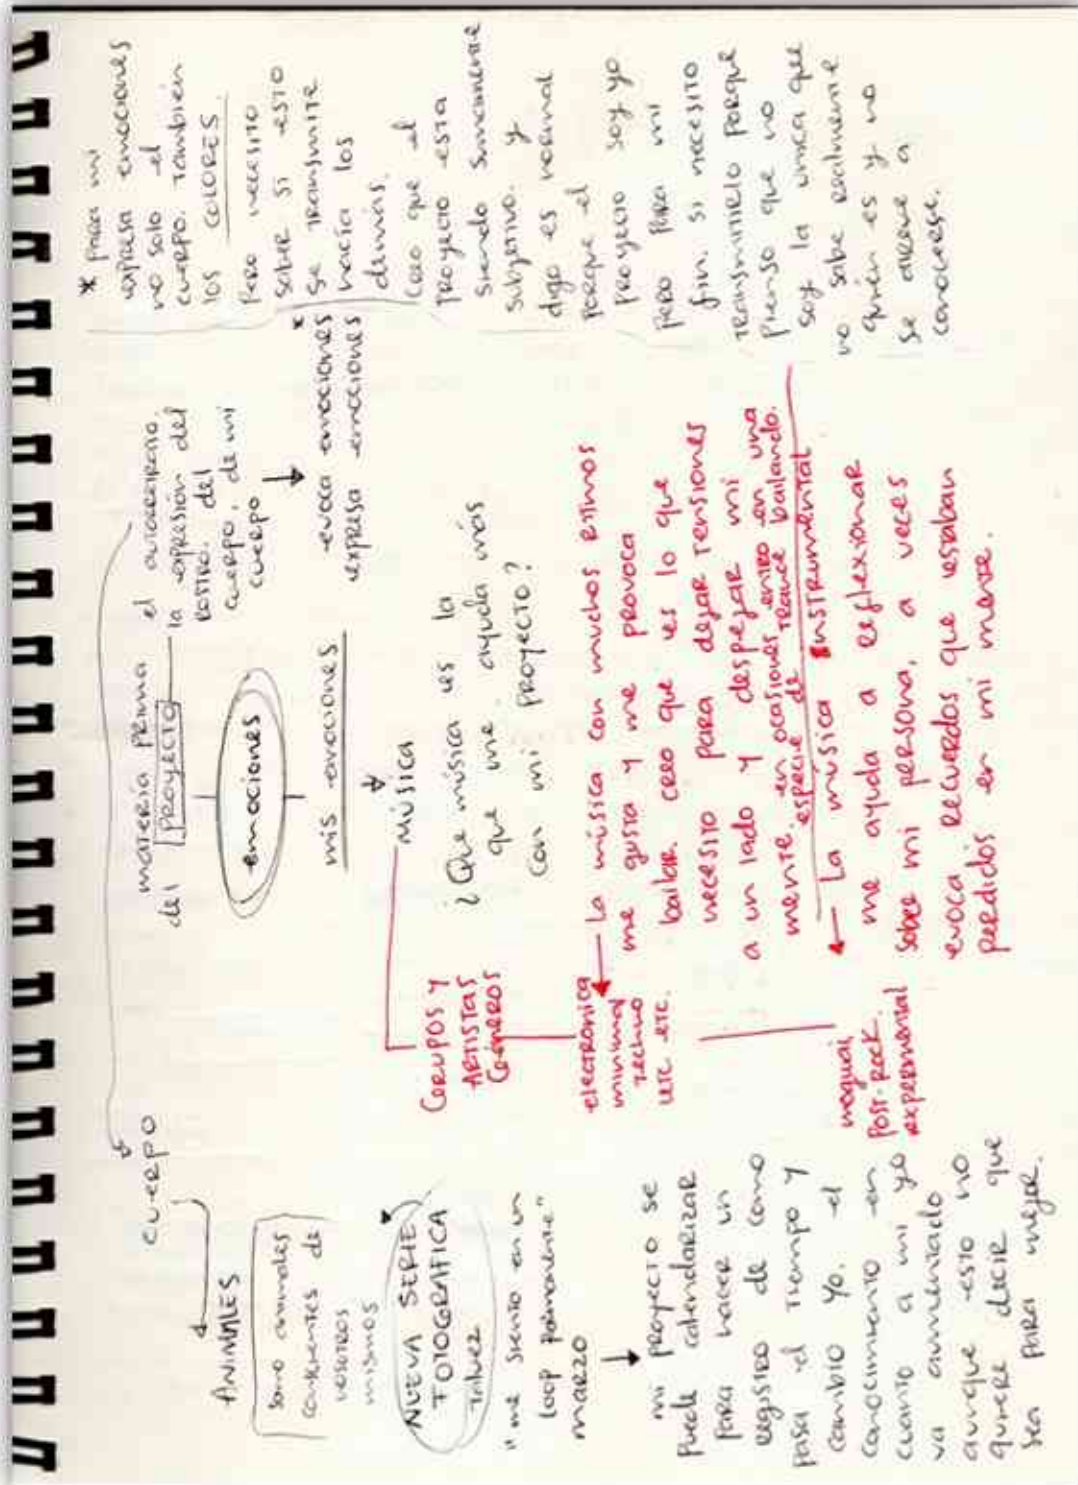 cuerpo
ANIMALES
somo animales
conscientes de
nosotros
mismos
NUEVA SERIE
FOTOGRAFICA
talvez
"me siento en un
loop permanente"
marzo
mi proyecto se
puede calendarizar
para hacer un
registro de como
pasa el tiempo y
cambio yo. el
conocimiento en
cuanto a mi yo
va aumentado
aunque esto no
quiere decir que
sea para mejor.
materia prima
del PROYECTO
el autorretrato.
la expresión del
rostro. del
cuerpo, de mi
cuerpo
emociones
mis emociones
evoca emociones *
expresa emociones
música
¿Que música es la
que me ayuda más
con mi proyecto?
GRUPOS Y
ARTISTAS
GÉNEROS
electronica
minimal
techno
etc. etc.
La música con muchos ritmos
me gusta y me provoca
bailar. creo que es lo que
necesito para dejar tensiones
a un lado y despejar mi
mente. en ocasiones entro en una
especie de trance bailando.
mogwai
Post-Rock.
experimental
La música INSTRUMENTAL
me ayuda a reflexionar
sobre mi persona, a veces
evoca recuerdos que estaban
perdidos en mi mente.
* para mi
expresa emociones
no solo el
cuerpo. También
los COLORES.
Pero necesito
saber si esto
se transmite
hacia los
demás.
Creo que el
proyecto esta
siendo sumamente
subjetivo. y
digo es normal
porque el
proyecto soy yo
pero para mi
fin. si necesito
transmitirlo porque
pienso que no
soy la unica que
no sabe realmente
quién es y no
se atreve a
conocerse.